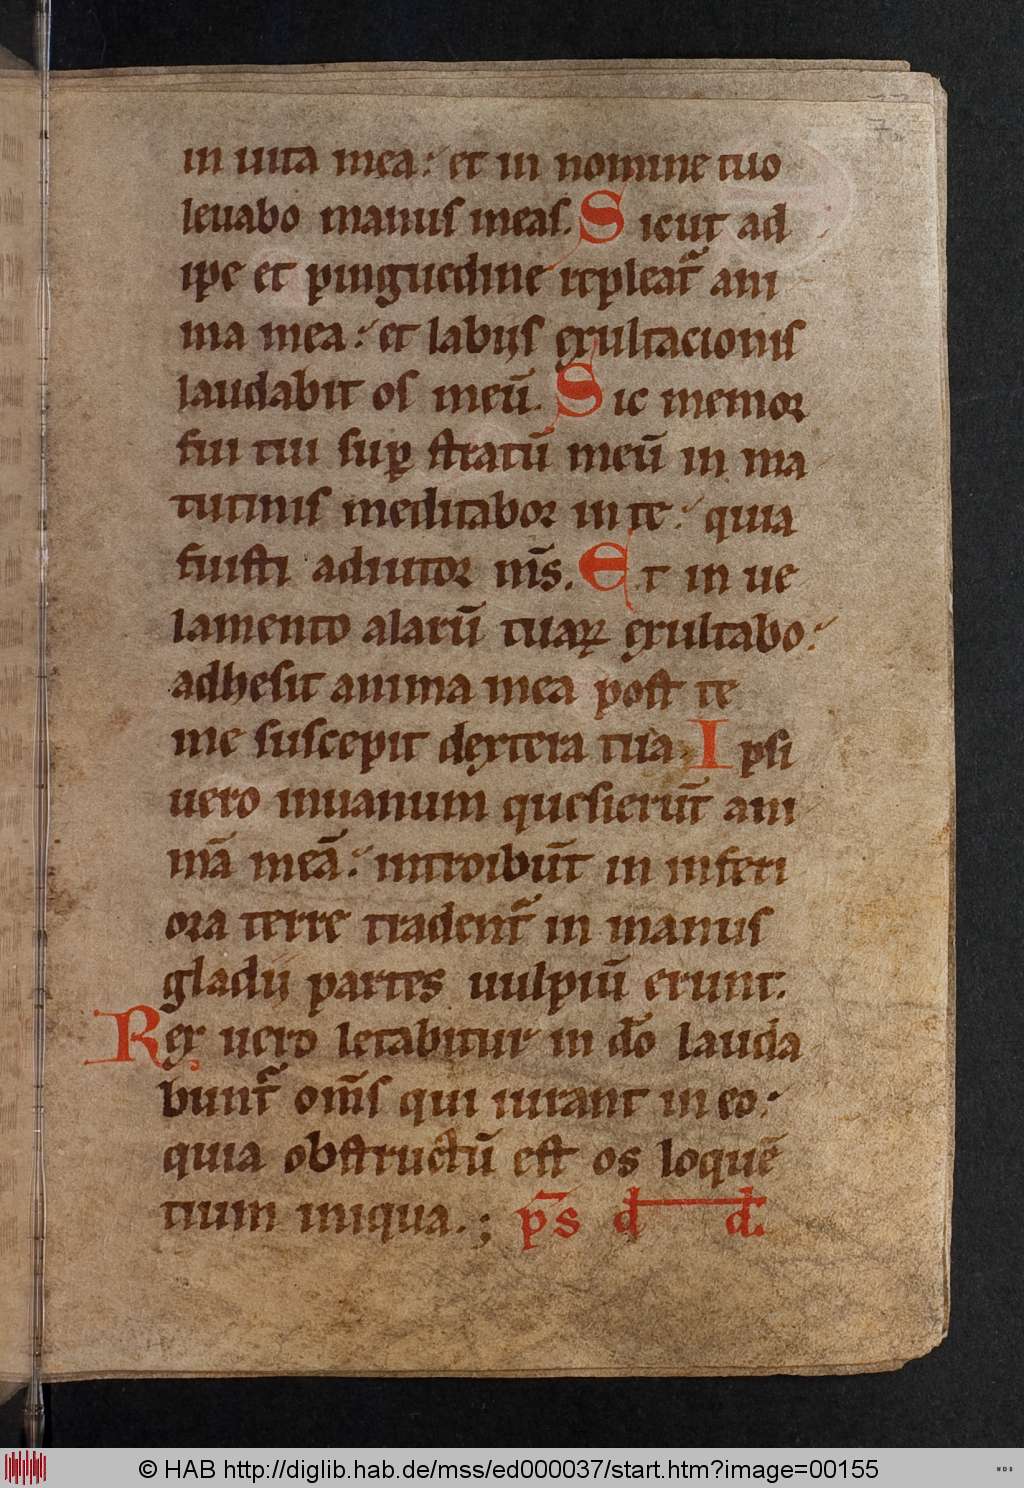 in uita mea: et in nomine tuo
leuabo manus meas. Sicut ad
ipe et pinguedine repleat᷑ ani
ma mea: et labijs exultacionis
laudabit os meū. Sic memor
fui tui sup̱ stratū meū in ma
tutinis meditabor in te: quia
fuisti adiutor m̄s. Et in ue
lamento alarū tuaꝝ exultabo:
adhesit anima mea post te
me suscepit dextera tua. Ipsi
uero inuanum quesierūt ani
mā meā: introibūt in inferi
ora terre tradent᷑ in manus
gladii partes uulpiū erunt.
Rex uero letabitur in dō lauda
bunt᷑ om̄s qui iurant in eo:
quia obstructū est os loquē
tium iniqua.; p̄s d d.
7
© HAB http://diglib.hab.de/mss/ed000037/start.htm?image=00155